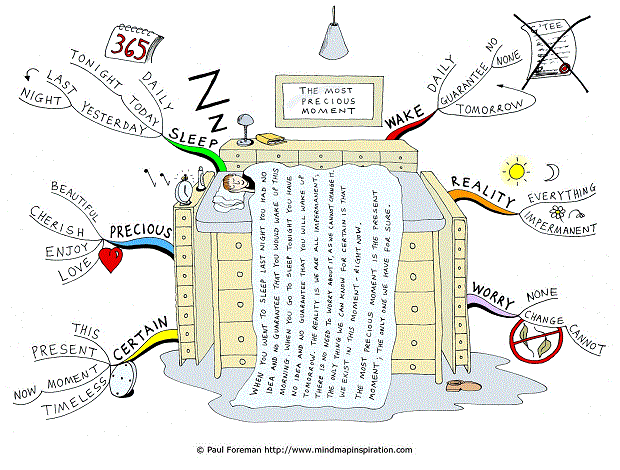 365
TONIGHT
DAILY
LAST
TODAY
NIGHT
YESTERDAY
SLEEP
THE MOST
PRECIOUS
MOMENT
WAKE
DAILY
GUARANTEE
NO
NONE
TOMORROW
'TEE
PRECIOUS
BEAUTIFUL
CHERISH
ENJOY
LOVE
REALITY
EVERYTHING
IMPERMANENT
CERTAIN
THIS
PRESENT
NOW
MOMENT
TIMELESS
WORRY
NONE
CHANGE
CANNOT
WHEN YOU WENT TO SLEEP LAST NIGHT YOU HAD NO
IDEA AND NO GUARANTEE THAT YOU WOULD WAKE UP THIS
MORNING. WHEN YOU GO TO SLEEP TONIGHT YOU HAVE
NO IDEA AND NO GUARANTEE THAT YOU WILL WAKE UP
TOMORROW. THE REALITY IS WE ARE ALL IMPERMANENT,
THERE IS NO NEED TO WORRY ABOUT IT, AS WE CANNOT CHANGE IT.
THE ONLY THING WE CAN KNOW FOR CERTAIN IS THAT
WE EXIST IN THIS MOMENT - RIGHT NOW.
THE MOST PRECIOUS MOMENT IS THE PRESENT
MOMENT, THE ONLY ONE WE HAVE FOR SURE.
ZZZ
© Paul Foreman http://www.mindmapinspiration.com